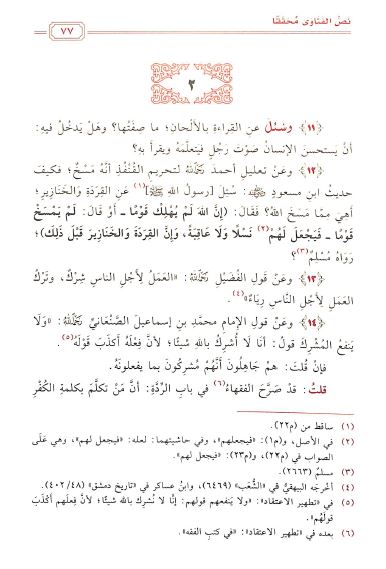 نَصُّ الفَتَاوى مُحَقَّقًا
٧٧
٢
﴿١١﴾ وسُئل عن القراءةِ بالألحان؛ ما صِفَتُها؟ وهل يَدخُلُ فيه:
أنْ يَستحسنَ الإنسانُ صَوْتَ رَجُلٍ فيتعلَّمَهُ ويقرأ به؟
﴿١٢﴾ وعَنْ تعليلِ أحمدَ رَحِمَهُ اللهُ لتحريمِ القُنْفُذِ أنَّه مَسْخٌ؛ فكيفَ
حديثُ ابن مسعودٍ رَضِيَ اللهُ عَنْهُ: سُئِلَ [رسولُ اللهِ ﷺ](١) عن القِرَدَةِ والخَنَازِيرِ؛
أهيَ ممَّا مَسَخَ اللهُ؟ فقَالَ: (إِنَّ اللهَ لَمْ يُهْلِكْ قَوْمًا ـ أَوْ قَالَ: لَمْ يَمْسَخْ
قَوْمًا ـ فَيَجْعَلَ لَهُمْ(٢) نَسْلًا وَلَا عَاقِبَةً، وَإِنَّ القِرَدَةَ وَالخَنَازِيرَ قَبْلَ ذَلِكَ)؛
رَوَاهُ مُسْلِمٌ(٣)؟
﴿١٣﴾ وعَنْ قولِ الفُضَيْلِ رَحِمَهُ اللهُ: «العَمَلُ لِأَجْلِ الناسِ شِرْكٌ، وتَرْكُ
العَمَلِ لِأَجْلِ النَّاسِ رِيَاءٌ»(٤).
﴿١٤﴾ وعَنْ قولِ الإمامِ محمَّدِ بنِ إسماعيلَ الصَّنْعَانِيِّ رَحِمَهُ اللهُ: «وَلَا
يَنفعُ المُشْرِكَ قولُ: أنَا لَا أُشْرِكُ باللهِ شيئًا؛ لأنَّ فِعْلَهُ أكذَبَ قَوْلَهُ»(٥).
فإنْ قُلتَ: هم جَاهِلُونَ أنَّهُمْ مُشرِكُونَ بما يفعلونَهُ.
قلتُ: قد صَرَّحَ الفقهاءُ(٦) في بابِ الرِّدَّةِ: أنَّ مَنْ تكلَّمَ بكلمةِ الكُفْرِ
(١) ساقط من (م٢٢).
(٢) في الأصل، و(م١): «فيجعلهم»، وفي حاشيتهما: لعله: «فيجعل لهم»، وهي عَلَى
الصواب في (م٢٢)، و(م٢٣): «فيجعل لهم».
(٣) مسلم (٢٦٦٣).
(٤) أخرجَه البيهقيُّ في «الشُّعَب» (٦٤٦٩)، وابنُ عساكر في «تاريخ دمشق» (٤٠٢/٤٨).
(٥) في «تطهير الاعتقاد»: «ولا يَنفعهم قولهم: إنَّا لا نُشرك بالله شيئًا؛ لأنَّ فِعلَهم أكذَبَ
قولهُم».
(٦) بعده في «تطهير الاعتقاد»: «في كتبِ الفقه».